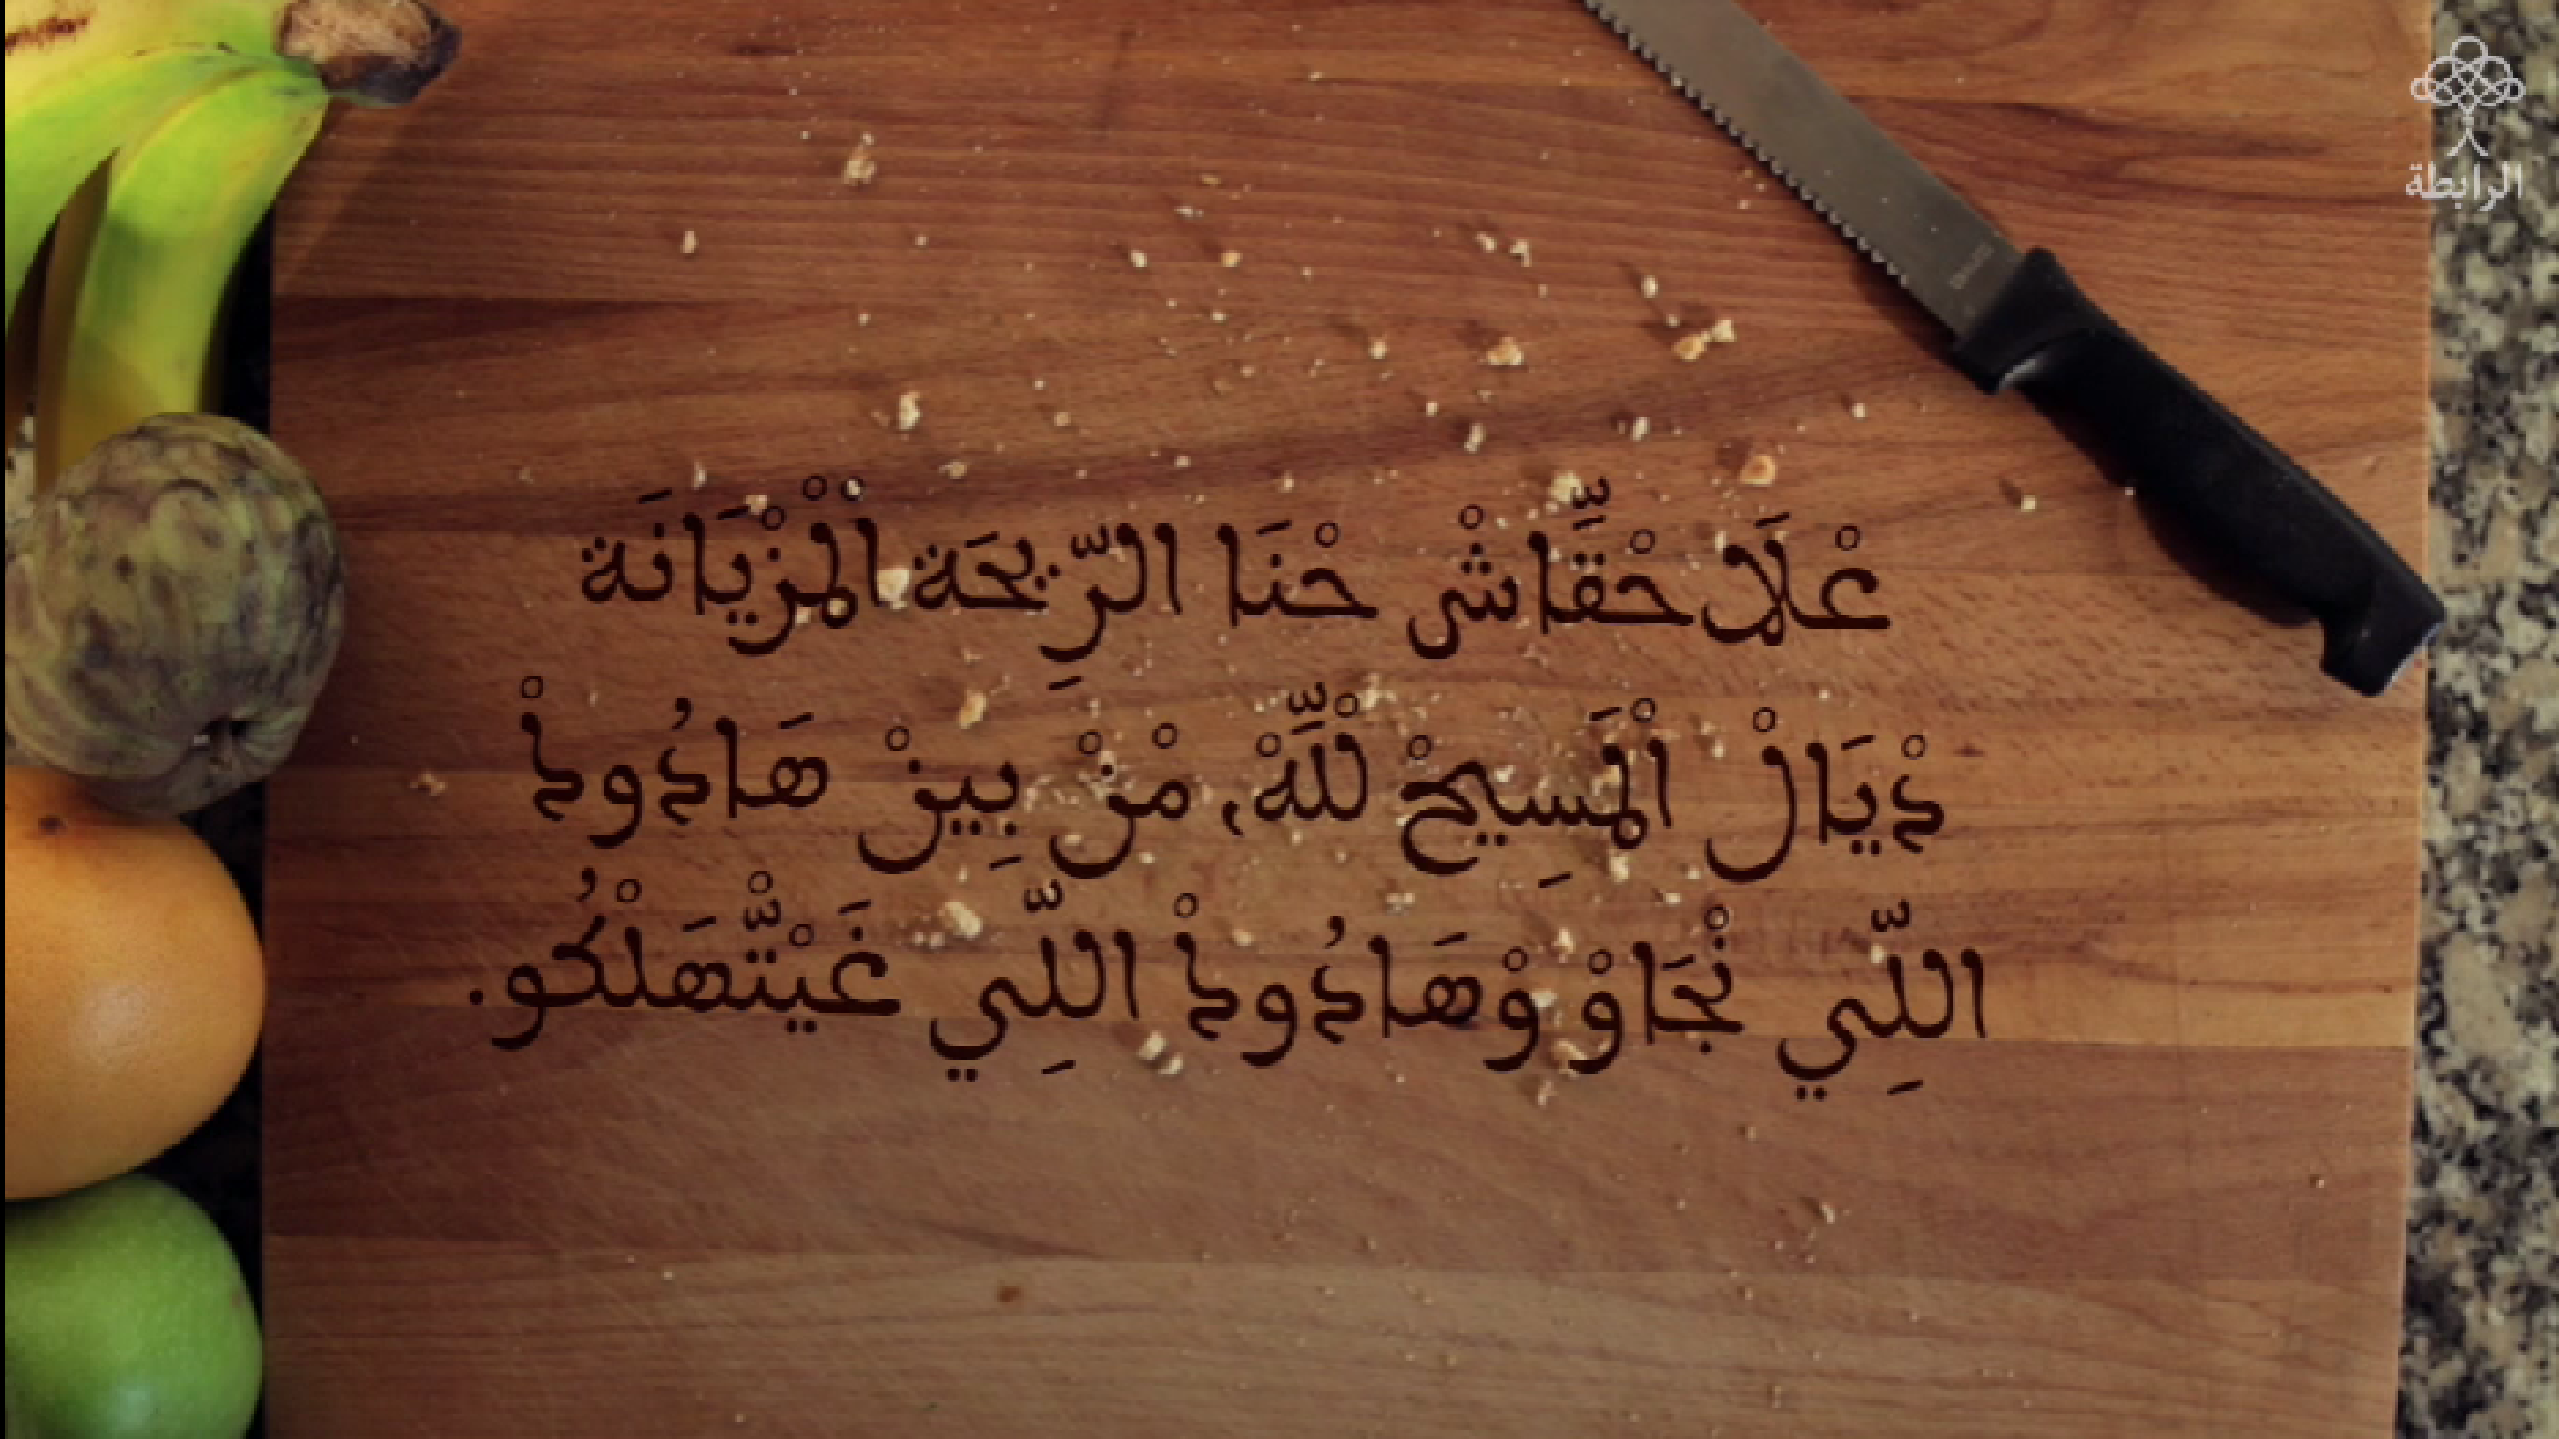 الرابطة
عْلَاحْقَّاشْ حْنَا الرِّيحَة الْمْزْيَانَة
دْيَالْ الْمَسِيحْ لْلَّهْ، مْنْ بِينْ هَادُودْ
اللِّي نْجَاوْ وْهَادُودْ اللِّي غَيْتّْهَلْكُو.